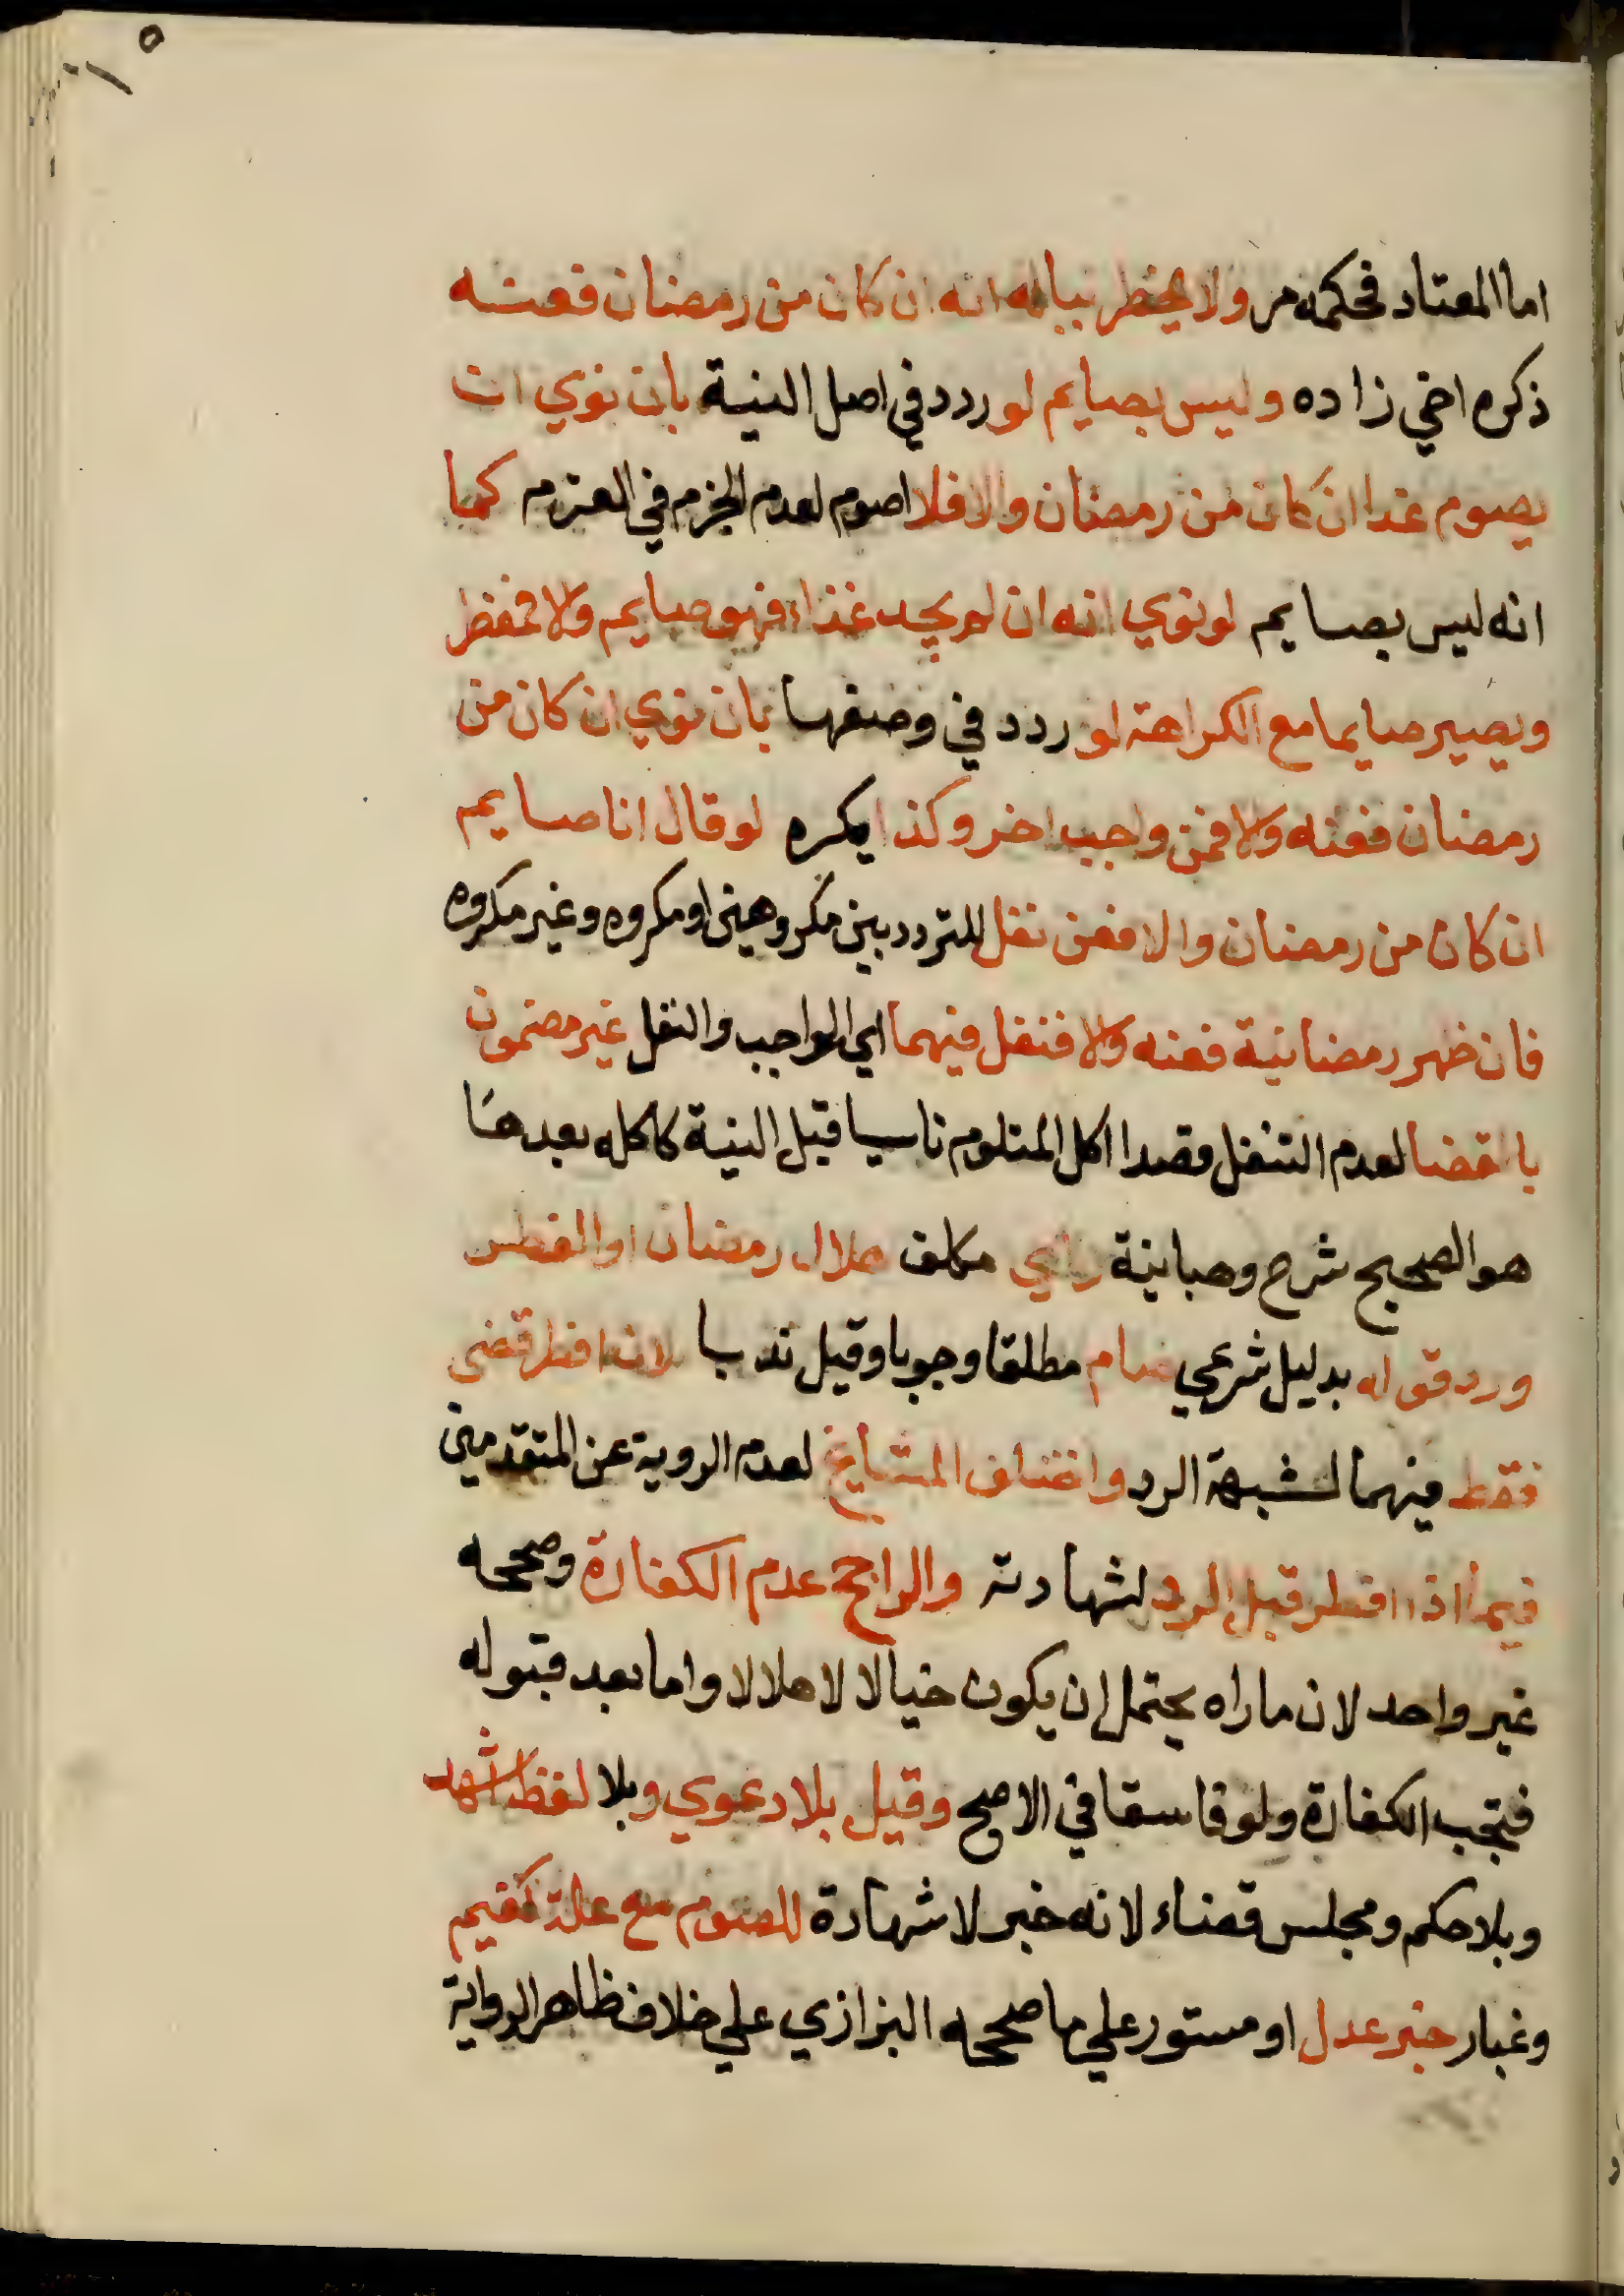 اما المعتاد فحكمه مر ولا يخطر بباله انه ان كان من رمضان فعنه
ذكره اخي زاده وليس بصايم لو ردد في اصل النية بان نوي ان
يصوم غدا ان كان من رمضان والا فلا اصوم لعدم الجزم في العزم كما
انه ليس بصايم لو نوي انه ان لم يجد غذاء فهو صايم والا فمفطر
ويصير صايما مع الكراهة لو ردد في وصفها بان نوي ان كان من
رمضان فعنه والا فمن واجب اخر وكذا يكره لو قال انا صايم
ان كان من رمضان والا فعن نفل للتردد بين مكروهين او مكروه وغير مكروه
فان ظهر رمضانية فعنه والا فنفل فيهما اي الواجب والنفل غير مضمون
بالقضا لعدم التنفل قصدا اكل المتلوم ناسيا قبل النية كاكله بعدها
هو الصحيح شرح وهبانية راي مكلف هلال رمضان او الفطر
ورد قوله بدليل شرعي صام مطلقا وجوبا وقيل ندبا لان افطر قضي
فقط فيهما لشبهة الرد واختلف المشايخ لعدم الروية عن المتقدمين
فيما اذا افطر قبل الرد لشهادته والراجح عدم الكفارة وصححه
غير واحد لان ماراه يحتمل ان يكون خيالا لا هلالا واما بعد قبوله
فتجب الكفارة ولو فاسقا في الاصح وقيل بلا دعوي وبلا لفظ اشهد
وبلا حكم ومجلس قضاء لانه خبر لا شهادة للصوم مع علة كغيم
وغبار خبر عدل او مستور علي ما صححه البزازي علي خلاف ظاهر الرواية